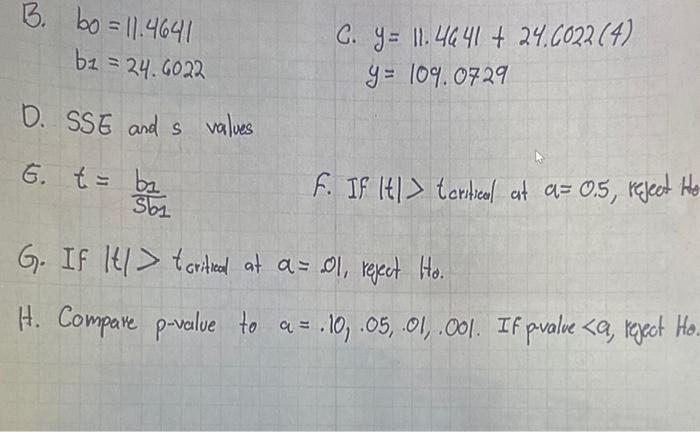 B. b0 = 11.4641
b1 = 24.6022
C. y = 11.4641 + 24.6022(4)
y = 109.0729
D. SSE and s values
E. t = b1/Sb1
F. If |t| > tcritical at a = 0.5, reject Ho
G. If |t| > tcritical at a = .01, reject Ho.
H. Compare p-value to a = .10, .05, .01, .001. If p-value <a, reject Ho.